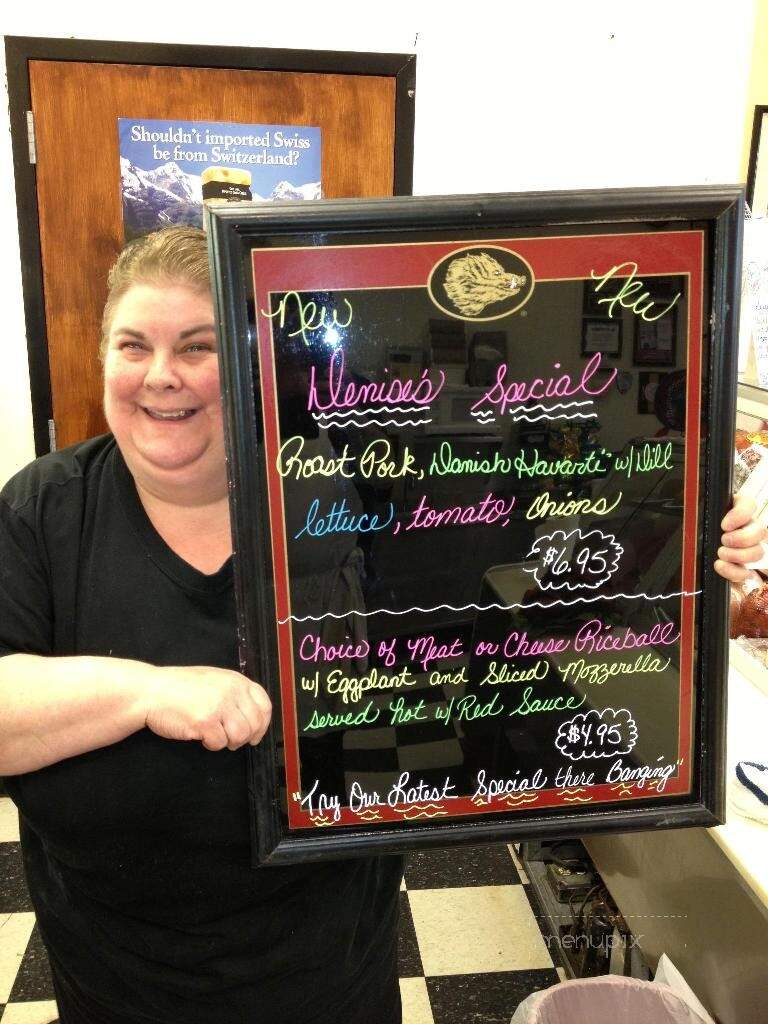 Shouldn't imported Swiss
be from Switzerland?
New New
Denise's Special
Roast Pork, Danish Havarti w/ Dill
lettuce, tomato, Onions
$6.95
Choice of Meat or Cheese Riceball
w/ Eggplant and Sliced Mozzerella
served hot w/ Red Sauce
$4.95
"Try Our Latest Special there Banging"
menupix